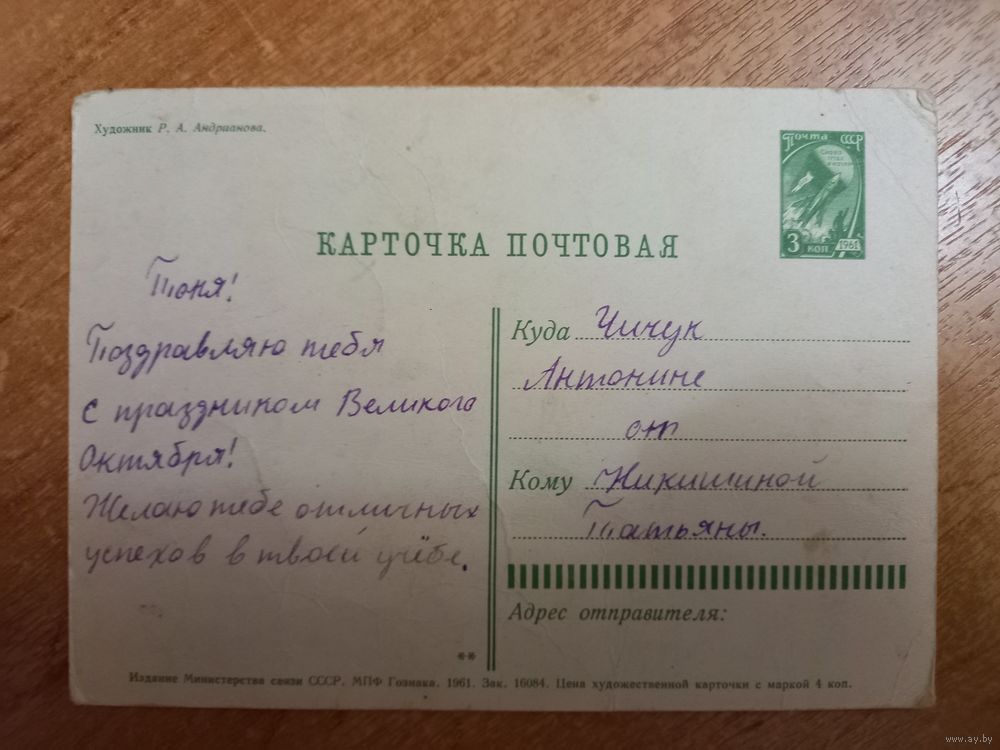 Художник Р. А. Андрианова.
Почта СССР
3 коп
1961
КАРТОЧКА ПОЧТОВАЯ
Тоня!
Поздравляю тебя
с праздником Великого
Октября!
Желаю тебе отличных
успехов в твоей учёбе.
Куда Чичук
Антонине
от
Кому Никишиной
Татьяны.
Адрес отправителя:
**
Издание Министерства связи СССР. МПФ Гознака. 1961. Зак. 16084. Цена художественной карточки с маркой 4 коп.
www.ay.by